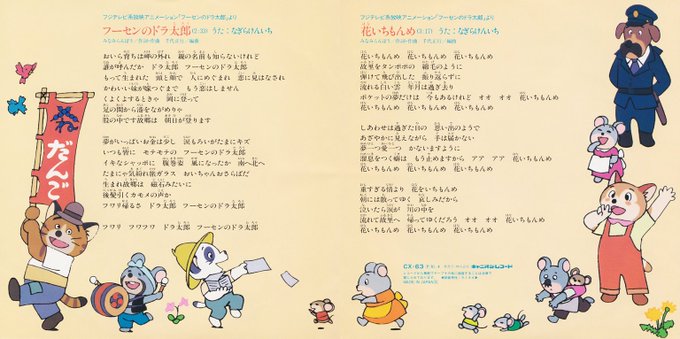 フジテレビ系放映アニメーション「フーセンのドラ太郎」より
フーセンのドラ太郎(2:33) うた：なぎらけんいち
みなみらんぼう／作詞・作曲 千代正行／編曲
おいら育ちは岬の外れ 親の名前も知らないけれど
誰が呼んだか ドラ太郎 フーセンのドラ太郎
もって生まれた 頭と顔で 人にめぐまれ 恋に見はなされ
かわいい妹が嫁つぐまで もう恋はしません
くよくよするときゃ 岡に登って
足の間から港をながめりゃ
股の中です故郷は 朝日が登ります
夢がいっぱいお金は少し 涙もろいがたまにキズ
いつも皆に モテモテの フーセンのドラ太郎
イキなシャッポに 腹巻姿 風になったか 南へ北へ
たまにゃ気紛れ旅ガラス おいちゃんおさらばだ
生まれ故郷は 磁石みたいに
後髪引くカモメの声か
フワリ帰るさ ドラ太郎 フーセンのドラ太郎
フワリ フワフワ ドラ太郎 フーセンのドラ太郎
だんご
フジテレビ系放映アニメーション「フーセンのドラ太郎」より
花いちもんめ(3:17) うた：なぎらけんいち
みなみらんぼう／作詞・作曲 千代正行／編曲
花いちもんめ 花いちもんめ 花いちもんめ
故里をタンポポの 綿毛のように
弾けて飛び出した 振り返らずに
流れる白い雲 年月は過ぎ去り
ポケットの夢だけは 今もあるけれど オオ オオ 花いちもんめ
花いちもんめ 花いちもんめ 花いちもんめ
しあわせは過ぎた日の 思い出のようで
あざやかに見えながら 手は届かない
夢一つ愛一つ かないますように
溜息をつく癖は もう止めますから アア アア 花いちもんめ
花いちもんめ 花いちもんめ 花いちもんめ
重すぎる倖より 花をいちもんめ
朝には散ってゆく 哀しみだから
泣いたら涙が 川の中を
流れて故里へ 帰ってゆくだろう オオ オオ 花いちもんめ
花いちもんめ 花いちもんめ 花いちもんめ
CX-63 キャニオンレコード
MADE IN JAPAN